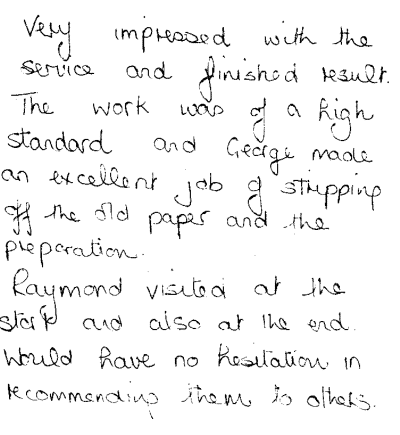 Very impressed with the
service and finished result.
The work was of a high
standard and George made
an excellent job of stripping
off the old paper and the
preparation.
Raymond visited at the
start and also at the end.
Would have no hesitation in
recommending them to others.